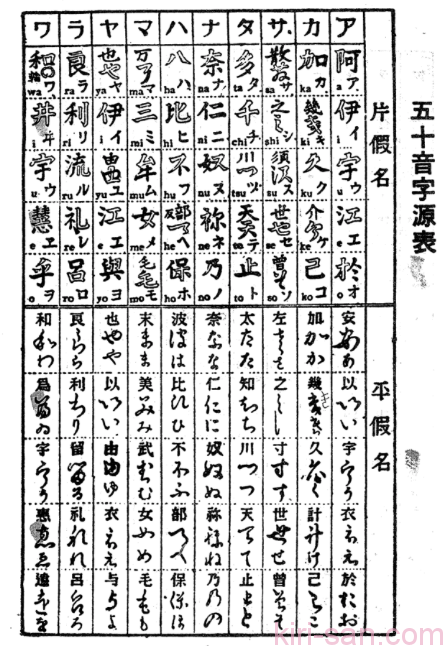 五十音字源表
片假名
平假名
ア
阿 ア a 伊 イ i 宇 ウ u 江 エ e 於 オ o
安 あ 以 い 宇 う 衣 え 於 お
カ
加 カ ka 幾 キ ki 久 ク ku 介 ケ ke 己 コ ko
加 か 幾 き 久 く 計 け 己 こ
サ
散 サ sa 之 シ shi 須 ス su 世 セ se 曽 ソ so
左 さ 之 し 寸 す 世 せ 曽 そ
タ
多 タ ta 千 チ chi 川 ツ tsu 天 テ te 止 ト to
太 た 知 ち 川 つ 天 て 止 と
ナ
奈 ナ na 仁 ニ ni 奴 ヌ nu 祢 ネ ne 乃 ノ no
奈 な 仁 に 奴 ぬ 祢 ね 乃 の
ハ
八 ハ ha 比 ヒ hi 不 フ hu 部 ヘ he 保 ホ ho
波 は 比 ひ 不 ふ 部 へ 保 ほ
マ
万 マ ma 三 ミ mi 牟 ム mu 女 メ me 毛 モ mo
末 ま 美 み 武 む 女 め 毛 も
ヤ
也 ヤ ya 伊 イ i ユ yu 江 エ e 與 ヨ yo
也 や 以 い 由 ゆ 衣 え 与 よ
ラ
良 ラ ra 利 リ ri 流 ル ru 礼 レ re 呂 ロ ro
良 ら 利 り 留 る 礼 れ 呂 ろ
ワ
和 ワ wa 井 ヰ i 宇 ウ u 慧 ヱ e 乎 ヲ o
和 わ 爲 ゐ 宇 う 惠 ゑ 遠 を
kiri-san.com